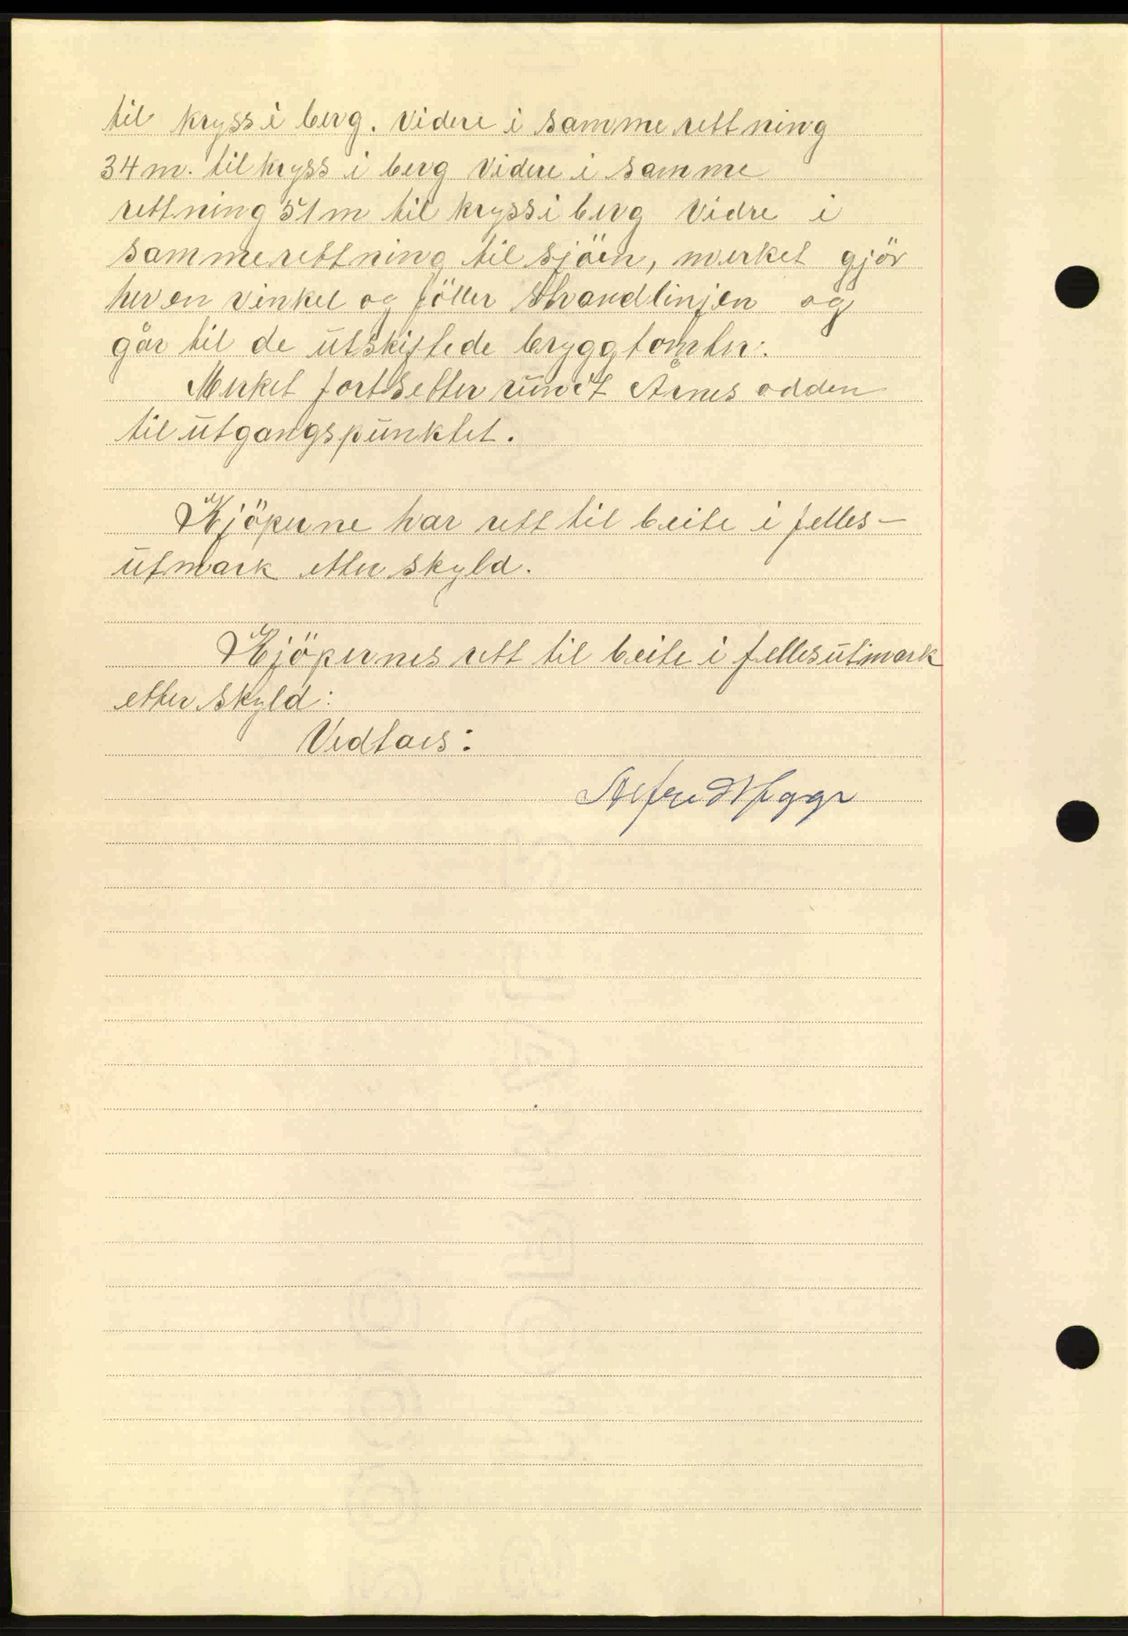 til kryss i berg. Videre i samme rettning
34 m. til kryss i berg Videre i samme
rettning 51 m til kryss i berg Vidre i
samme rettning til sjöen, merket gjör
her en vinkel og föller strandlinjen og
går til de utskiftede bryggtomter.
Merket fortsetter rundt Årnes odden
til utgangspunktet.
Kjöperne har rett til beite i felles-
utmark etter skyld.
Kjöpernes rett til beite i fellesutmark
etter skyld:
Vedtaes: